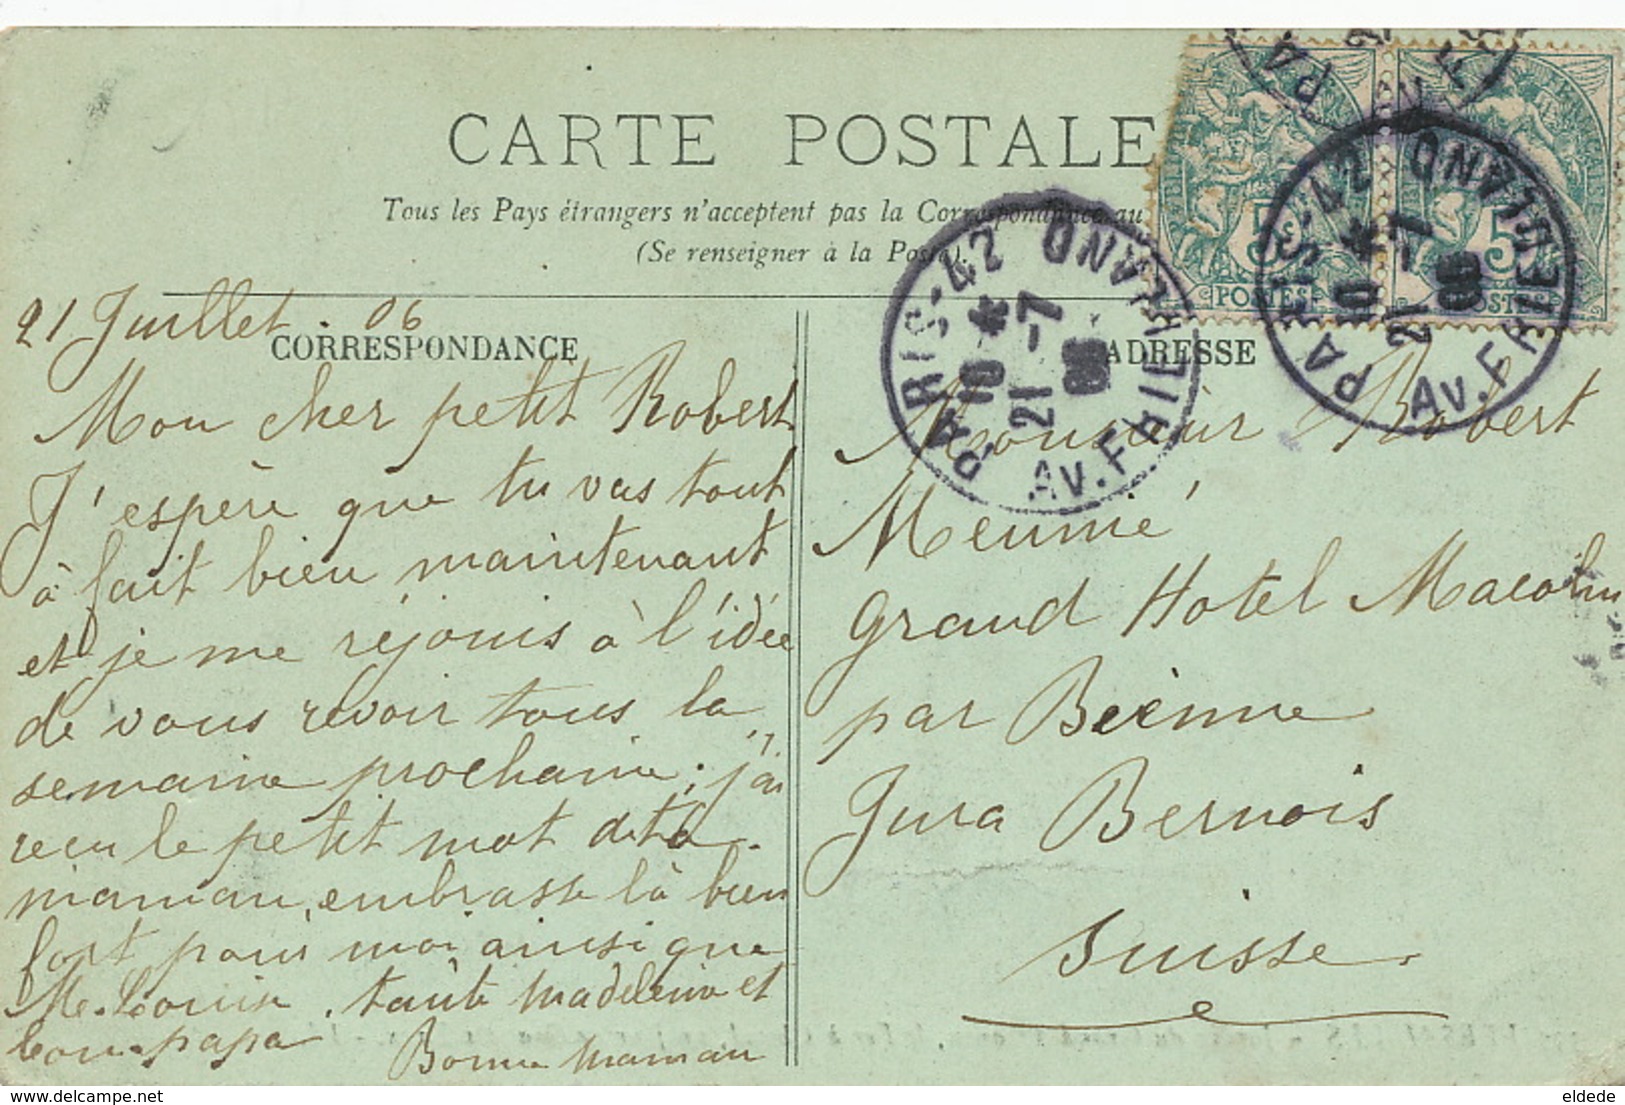 CARTE POSTALE
Tous les Pays étrangers n'acceptent pas la Correspondance au
(Se renseigner à la Poste).
21 Juillet. 06
CORRESPONDANCE
Mon cher petit Robert
J'espère que tu vas tout
à fait bien maintenant
et je me réjouis à l'idée
de vous revoir tous la
semaine prochaine ; j'ai
reçu le petit mot de ta
maman, embrasse là bien
fort pour moi ainsi que
Me. Louise. tante Madeleine et
ton papa
Bonne maman
ADRESSE
Monsieur Robert
Meunié
Grand Hotel Macolin
par Bienne
Jura Bernois
Suisse
PARIS-42
10 *
21 -7
06
AV. FRIEDLAND
PARIS-42
10 *
21 -7
06
AV. FRIEDLAND
PA
5c
POSTES
5
POSTES
delcampe.net
eldede